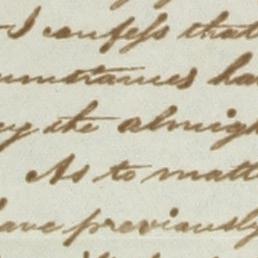 I confess that
umstances ha
ey the almigh
As to matt
have previously